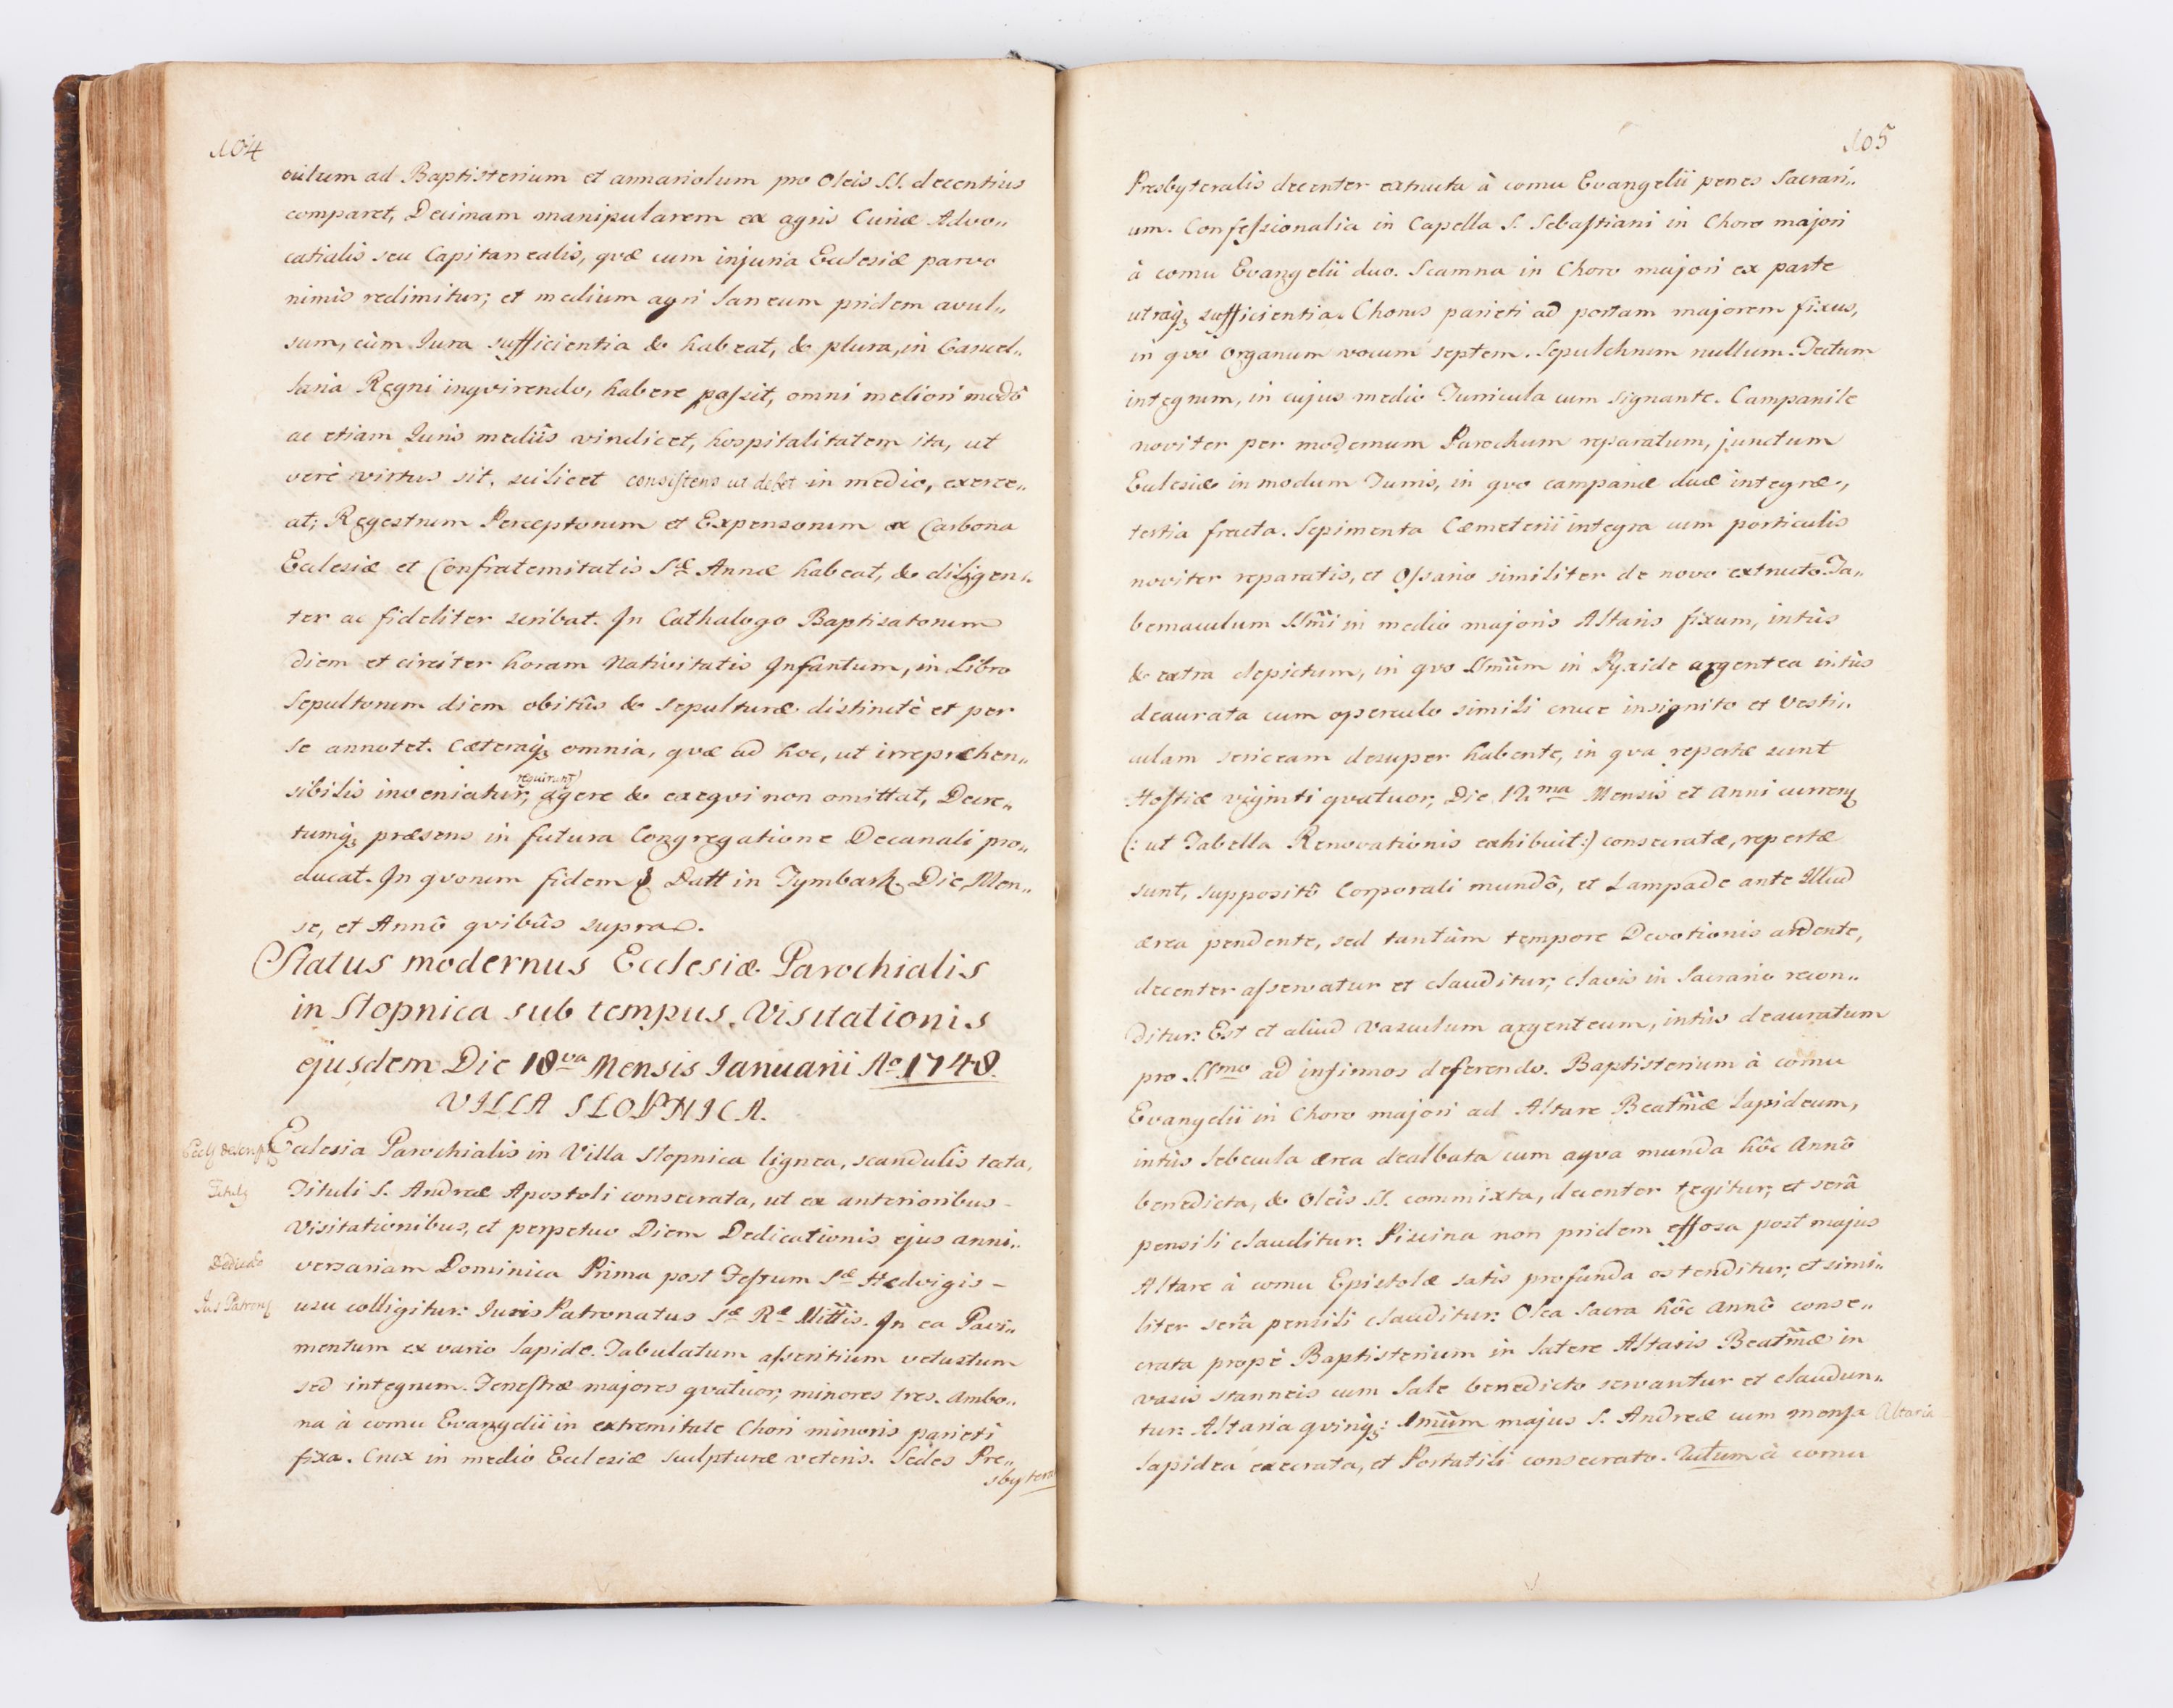 104
culum ad Baptisterium et armariolum pro Oleis SS. decentius
comparet, Decimam manipularem ex agris Curiæ Advo„
catialis seu Capitanealis, qvæ cum injuria Ecclesiæ parvo
nimis redimitur; et medium agri laneum pridem avul„
sum, cùm Jura sufficientia & habeat, & plura, in Cancel„
laria Regni inqvirendo, habere possit, omni meliori modô
ac etiam Juris mediis vindicet, hospitalitatem ita, ut
verè virtus sit, scilicet consistens ut debet in medio, exerce„
at; Regestrum Perceptorum et Expensorum ex Carbona
Ecclesiæ et Confraternitatis Sæ Annæ habeat, & diligen„
ter ac fideliter scribat. In Cathalogo Baptisatorum
diem et circiter horam Nativitatis Infantum, in Libro
Sepultorum diem obitûs & sepulturæ distinctè et per
se annotet. Cæteraq; omnia, qvæ ad hoc, ut irrepræhen„
sibilis inveniatur, requirunt, agere & exeqvi non omittat, Decre„
tumq; præsens in futura Congregatione Decanali pro„
ducat. In qvorum fidem Datt in Tymbark. Die, Men„
se, et Annô qvibûs supra.
Status modernus Ecclesiæ Parochialis
in Slopnica sub tempus Visitationis
ejusdem Die 18va Mensis Januarii Ao 1748.
VILLA SLOPNICA.
Ecclesia Parochialis in Villa Slopnica lignea, scandulis tecta,
Titulq
Tituli S. Andreæ Apostoli consecrata, ut ex anterioribus
Visitationibus, et perpetuo Diem Dedicationis ejus anni„
Dedicao
versariam Dominica Prima post Festum Sæ Hedvigis –
Jus Patronq
usu colligitur. Juris Patronatus Sæ Ræ Mttis. In ea Pavi„
mentum ex vario lapide. Tabulatum asseritium vetustum
sed integrum. Fenestræ majores qvatuor, minores tres. Ambo„
na à cornu Evangelii in extremitate Chori minoris parieti
fixa. Crux in medio Ecclesiæ sculpturæ veteris. Sedes Pre„
sbytera
105
Presbyteralis decenter extructa à cornu Evangelii penes Sacrari„
um. Confessionalia in Capella S. Sebastiani in Choro majori
à cornu Evangelii duo. Scamna in Choro majori ex parte
utraq; sufficientia. Chorus parieti ad portam majorem fixus,
in qvo Organum vocum septem. Sepulchrum nullum. Tectum
integrum, in cujus medio Turricula cum signante. Campanile
noviter per modernum Parochum reparatum, junctum
Ecclesiæ in modum Turris, in qvo campanæ duæ integræ,
tertia fracta. Sepimenta Cæmeterii integra cum porticulis
noviter reparatis, et Ossario similiter de novo extructo. Ta„
bernaculum SSmi in medio majoris Altaris fixum, intùs
& extra depictum, in qvo SSmum in Pyxide argentea intùs
deaurata cum operculo simili cruce insignito et Vesti„
culam sericeam desuper habente, in qva repertæ sunt
Hostiæ viginti qvatuor, Die 12ma Mensis et Anni currenq
(: ut Tabella Renovationis exhibuit :) consecratæ, repertæ
sunt, suppositô Corporali mundô, et Lampade ante Illud
ærea pendente, sed tantùm tempore Devotionis ardente,
decenter asservatur et clauditur; clavis in Sacrario recon„
ditur. Est et aliud Vasculum argenteum, intùs deauratum
pro SSmo ad infirmos deferendo. Baptisterium à cornu
Evangelii in Choro majori ad Altare Beatmæ lapideum,
intùs lebecula ærea dealbata cum aqva munda hôc Annô
benedicta, & Oleis SS. commixta, decenter tegitur, et serâ
pensili clauditur. Piscina non pridem effossa post majus
Altare à cornu Epistolæ satis profunda ostenditur, et simi„
liter serâ pensili clauditur. Olea Sacra hôc Annô conse„
crata propè Baptisterium in latere Altaris Beatmæ in
vasis stanneis cum Sale benedicto servantur et claudun„
tur. Altaria qvinq;: Imum majus S. Andreæ cum mensa
Altaria
lapidea execrata, et Portatili consecrato. 2dum à cornu